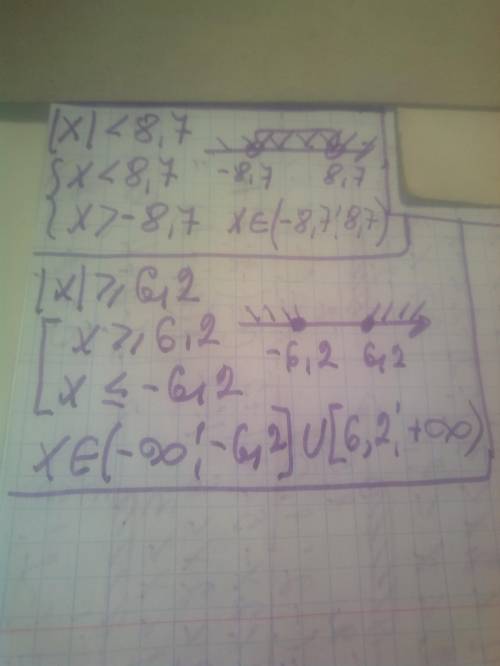 |x| < 8,7
{ x < 8,7
x > -8,7
-8,7 8,7
x∈(-8,7; 8,7)
|x| ⩾ 6,2
[ x ⩾ 6,2
x ≤ -6,2
-6,2 6,2
x∈(-∞; -6,2]∪[6,2; +∞)